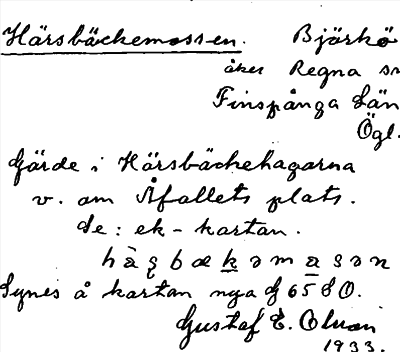 Härsbäckemossen. Björkö
åker Regna sn
Finspånga Län
Ögl.
Gärde i Härsbäckehagarna
v. om Åfallets plats.
Se: ek-kartan.
hàʂbækəmasən
Synes å kartan nya G 6580.
Gustaf E. Olsson
1933.